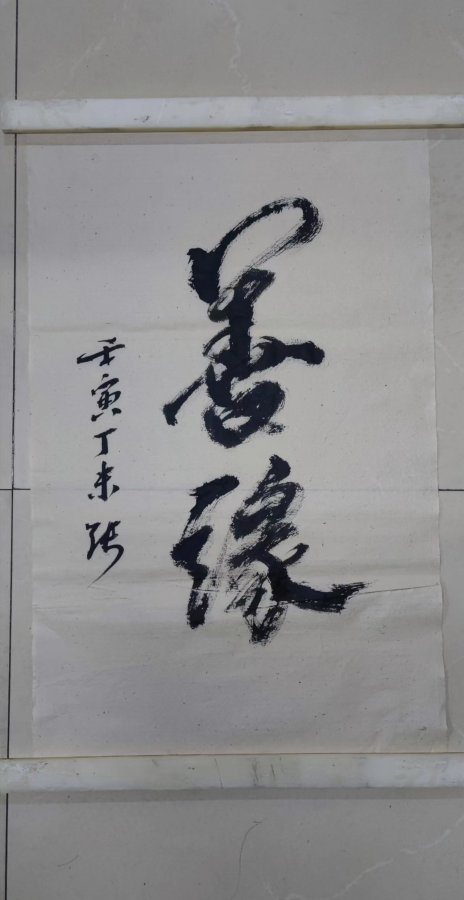 善缘
壬寅丁未张